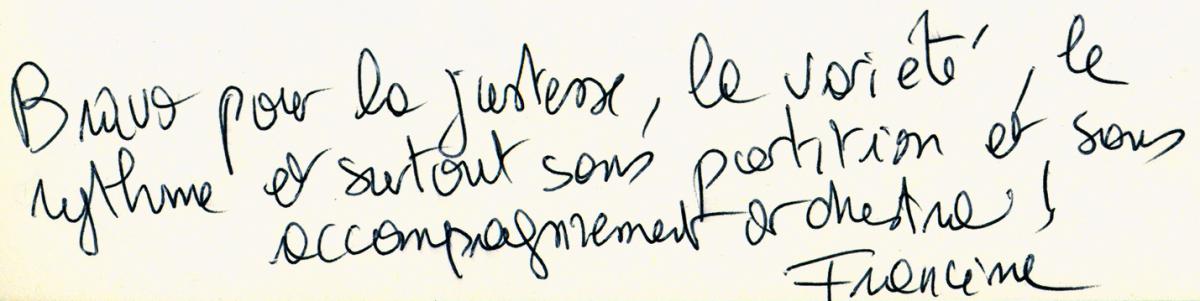 Bravo pour la justesse, la variété, le
rythme et surtout sans partition et sans
accompagnement orchestra !
Francine